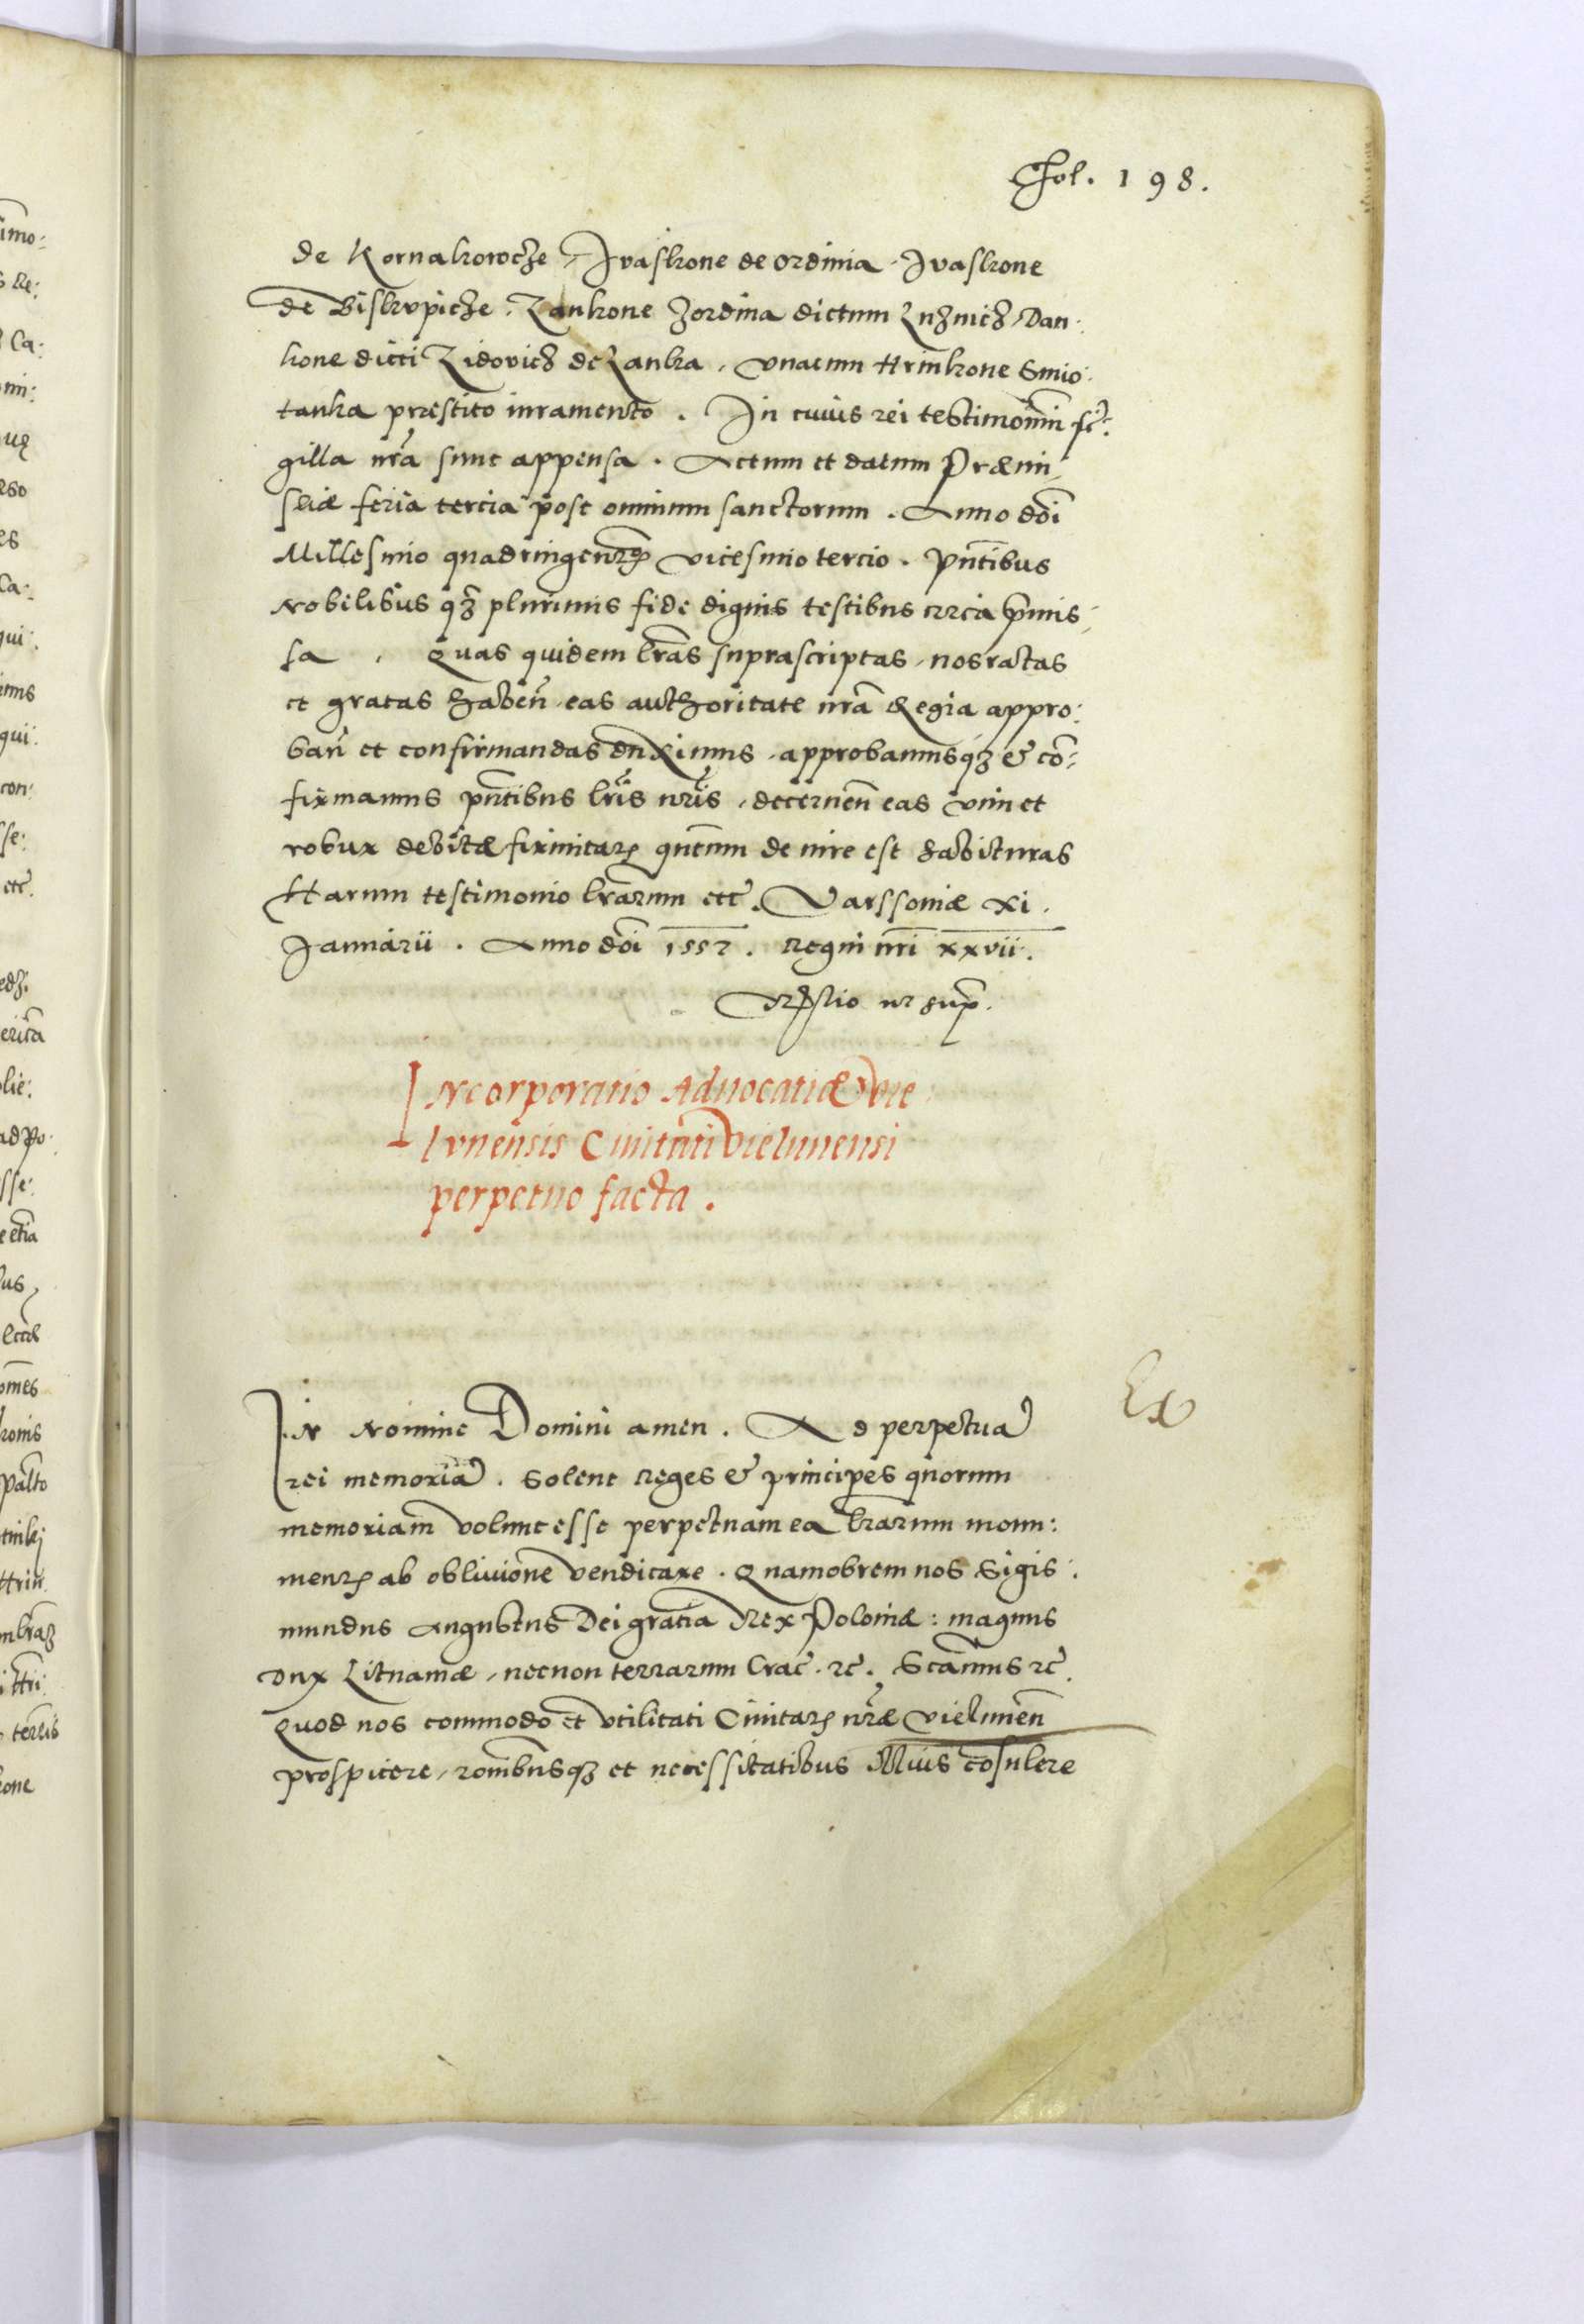 Fol. 198.
de Kornakowcze, Ivaskone de ordinia. Ivaskone
de Biskvpicze. Zankone Zordina dictum Luznicz, Dan:
kone dicti Zidovicz de Lanka, vnacum Hrinkone Smio:
tanka præstito iuramento. In cuius rei testimoniũ si:
gilla nrã sunt appensa. Actum et datum Præmi,
sliæ feria tercia post omnium sanctorum. Anno dõi
Millesimo quadringentesimo vicesimo tercio. Pñtibus
Nobilibus qz plurimis fide dignis testibus circa p̃mis,
sa. Quas quidem lrãs suprascriptas, nos ractas
et gratas habeñ, eas authoritate nrã Regia appro:
bañ et confirmandas duximus, approbamusqz & cõ:
firmamus pñtibus lrĩs nrĩs, decerneñ eas vim et
robur debitæ firmitatis quãtum de iure est habituras
Harum testimonio lrãrum etc. Varssoviæ xi.
Januarii. Anno dõi 1557. Regni nrĩ xxvii.
Relatio ut sup.
INcorporatio Aduocatiæ Vie
lvnensis Ciuitati vielunensi
perpetuo facta.
Ex
IN Nomine Domini amen. Ad perpetuã
rei memoriã. Solent Reges & principes quorum
memoriam volunt esse perpetuam ea lrãrum monu:
mentis ab obliuione vendicare. Quamobrem nos Sigis:
mundus Augustus Dei gratia Rex Poloniæ: magnus
Dux Lituaniæ, necnon terrarum Crac̃. zc. Scãmus zc̃.
Quod nos commodo et vtilitati Ciuitatis nræ vieluneñ
prospicere, rõnibusqz et necessitatibus illius cõsulere